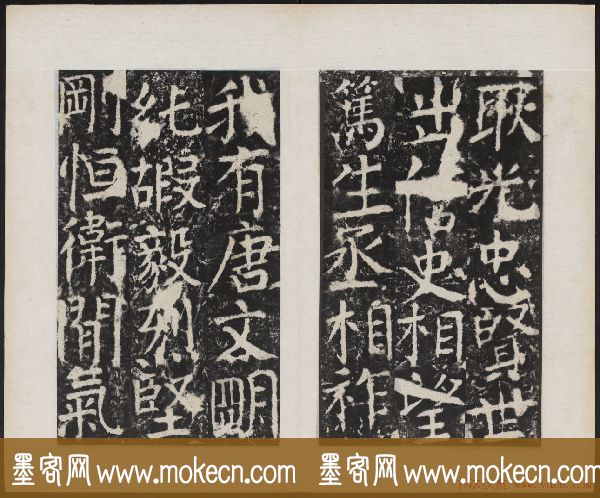 耿光忠賢世
出信史相望
篤生丞相祚
我有唐文明
純嘏毅烈堅
剛恒衛聞氣
墨客网 www.mokecn.com 墨客网 www.mokecn.com